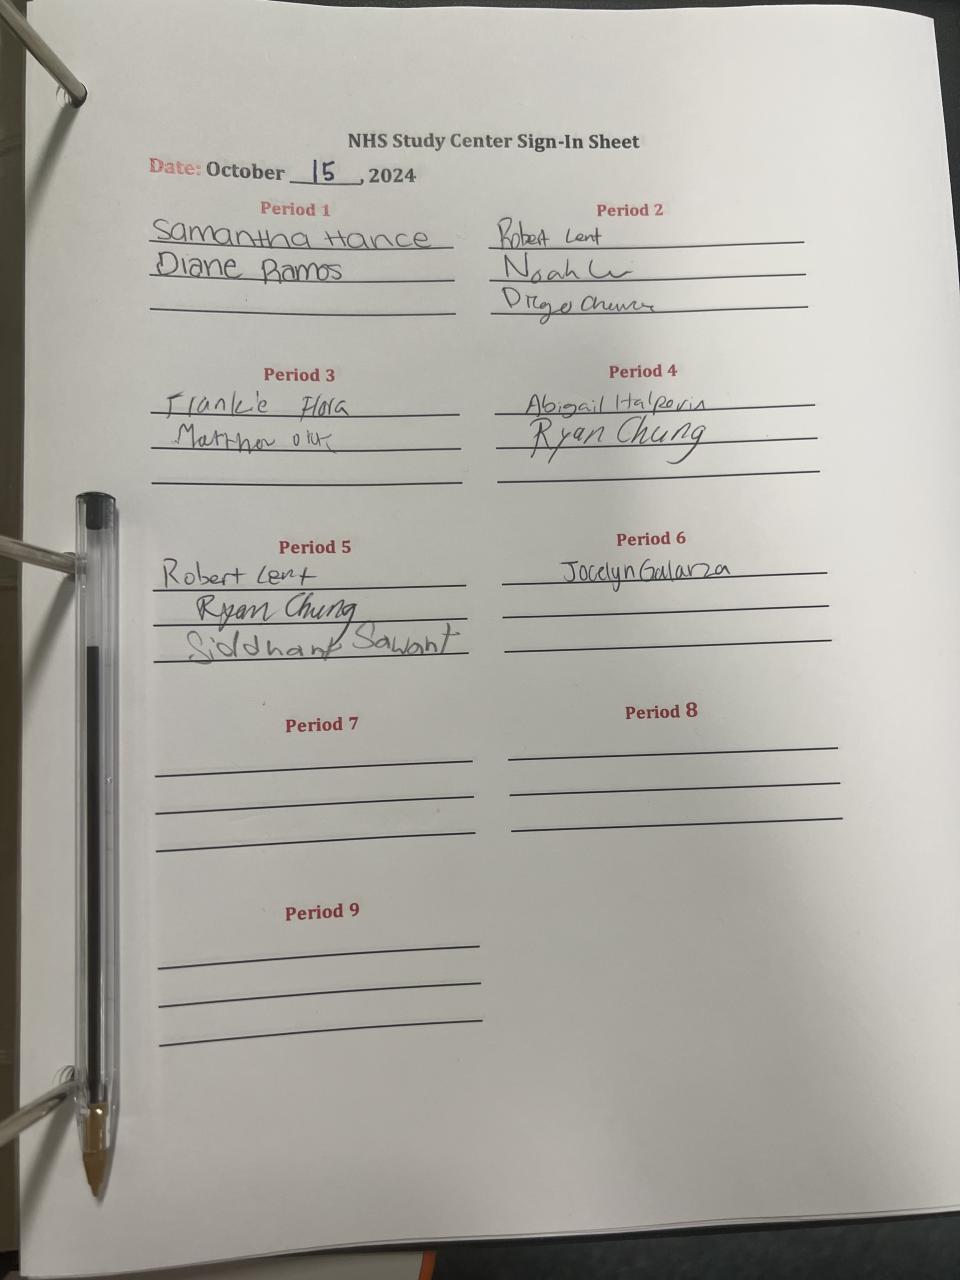 NHS Study Center Sign-In Sheet
Date: October 15, 2024
Period 1
Samantha Hance
Diane Ramos
Period 2
Robert Lent
Noah
Diego
Period 3
Frankie Flora
Matthew
Period 4
Abigail Halperin
Ryan Chung
Period 5
Robert Lent
Ryan Chung
Siddhant Sawant
Period 6
Jocelyn Galarza
Period 7
Period 8
Period 9